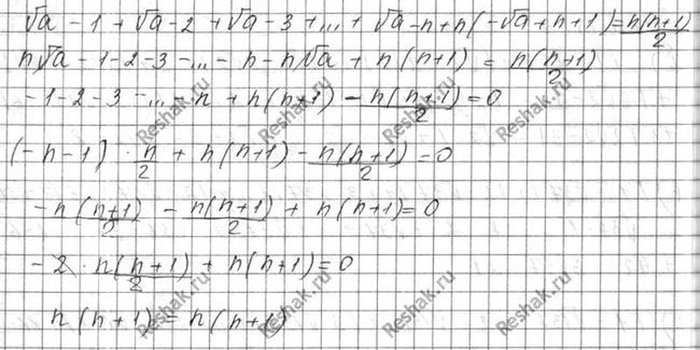 √a - 1 + √a - 2 + √a - 3 + ... + √a - n + n(-√a + n + 1) = n(n+1)/2
n√a - 1 - 2 - 3 - ... - n - n√a + n(n+1) = n(n+1)/2
-1 - 2 - 3 - ... - n + n(n+1) - n(n+1)/2 = 0
(-n-1) · n/2 + n(n+1) - n(n+1)/2 = 0
-n(n+1)/2 - n(n+1)/2 + n(n+1) = 0
-2 · n(n+1)/2 + n(n+1) = 0
n(n+1) = n(n+1)
Reshak.ru
Reshak.ru
Reshak.ru
Reshak.ru
Reshak.ru
Reshak.ru
Reshak.ru
Reshak.ru